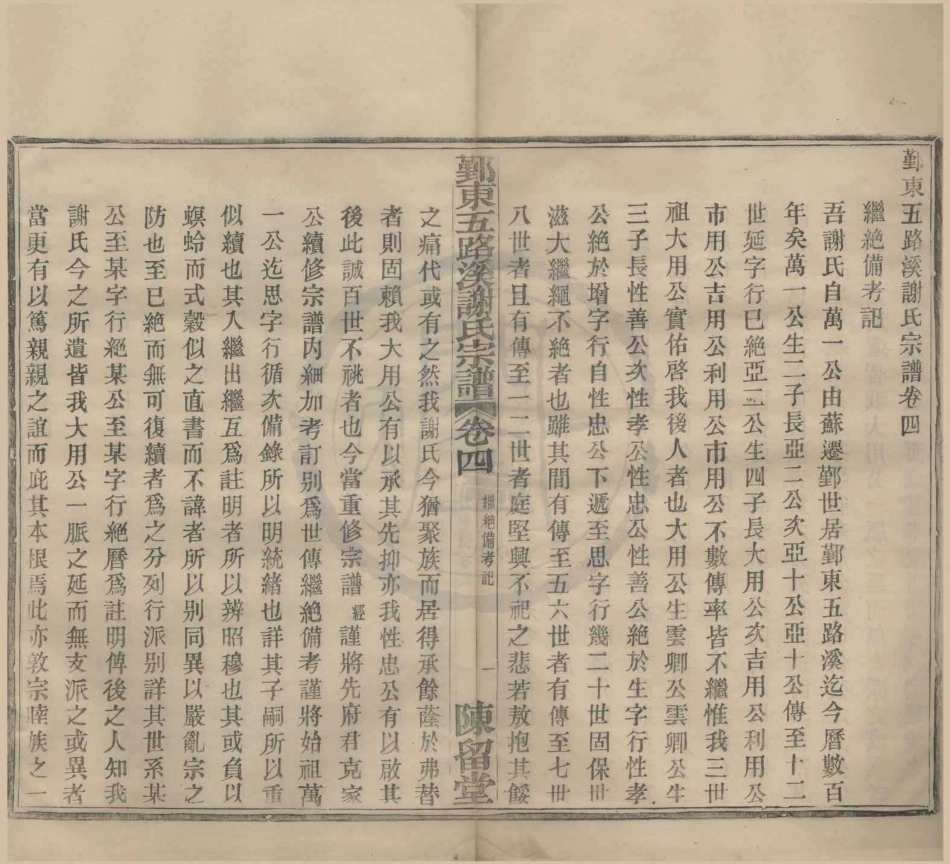 鄞東五路溪謝氏宗譜卷四
繼絕備考記
吾謝氏自萬一公由蘇遷鄞世居鄞東五路溪迄今曆數百
年矣萬一公生二子長亞二公次亞十公亞十公傳至十二
世延字行已絕亞二公生四子長大用公次吉用公利用公
市用公吉用公利用公市用公不數傳率皆不繼惟我三世
祖大用公實佑啓我後人者也大用公生雲卿公雲卿公生
三子長性善公次性孝公性忠公性善公絕於生字行性孝
公絕於增字行自性忠公下遞至思字行幾二十世固保世
滋大繼繩不絕者也雖其間有傳至五六世者有傳至七世
八世者且有傳至一二世者庭堅興不祀之悲若敖抱其餒
鄞東五路溪謝氏宗譜 卷四 繼絕備考記 一 陳留堂
之痛代或有之然我謝氏今猶聚族而居得承餘蔭於弗替
者則固賴我大用公有以承其先抑亦我性忠公有以啟其
後此誠百世不祧者也今當重修宗譜經謹將先府君克家
公續修宗譜內細加考訂別爲世傳繼絕備考謹將始祖萬
一公迄思字行循次備錄所以明統緒也詳其子嗣所以重
似續也其入繼出繼互爲註明者所以辨昭穆也其或負以
螟蛉而式穀似之直書而不諱者所以別同異以嚴亂宗之
防也至已絕而無可復續者爲之分列行派別詳其世系某
公至某字行絕某公至某字行絕曆爲註明俾後之人知我
謝氏今之所遺皆我大用公一脈之延而無支派之或異者
當更有以篤親親之誼而庇其本根焉此亦敦宗睦族之一